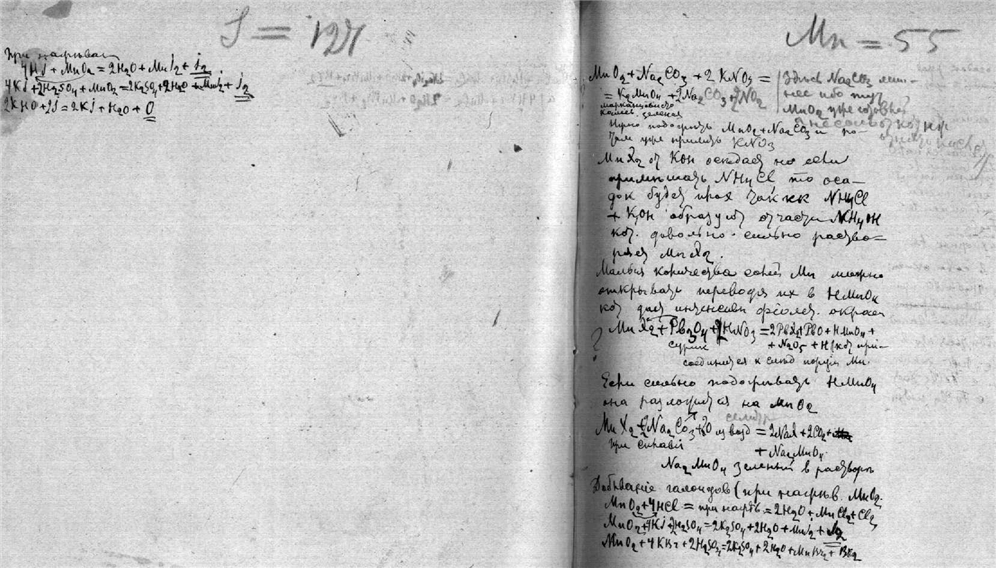 J = 127
При нагрыван
4HJ + MnO2 = 2H2O + MnJ2 + J2
4KJ + 2H2SO4 + MnO2 = 2K2SO4 + 2H2O + MnJ2 + J2
2KHO + 2J = 2KJ + H2O + O
Mn = 55
MnO2 + Na2CO3 + 2KNO3 =
= K2MnO4 + 2Na2CO3
Здесь Na2CO3 лиш-
нее ибо тут
MnO2 уже
зеленая
Нужно подогреть MnO2 + Na2CO3 и по-
том уже прилить KNO3
MnX2 от KOH оседает но если
примешать NH4Cl то оса-
док будет так как NH4Cl
+ KOH образует отчасти NH4OH
кот. довольно сильно раство-
ряет MnX2.
Малыя количества солей Mn можно
открывать переводя их в HMnO4
кот дает интенсивн фіолет. окраск
? MnX2 + Pb3O4 + HNO3 = 2PbX2 PbO + HMnO4 +
сурик + N2O5 + H (кот при-
соединяется к след порціи Mn.
Если сильно подогревать HMnO4
она разложится на MnO2
MnX2 + 2Na2CO3 + O из возд = 2NaX + 2CO2 +
при сплавле + Na2MnO4
Na2MnO4 зеленый в растворе
Добываніе галоидов (при нагрыв. MnO2
MnO2 + 4HCl = при нагр = 2H2O + MnCl2 + Cl2
MnO2 + 4KJ + 2H2SO4 = 2K2SO4 + 2H2O + MnJ2 + J2
MnO2 + 4KBr + 2H2SO4 = 2K2SO4 + 2H2O + MnBr2 + Br2